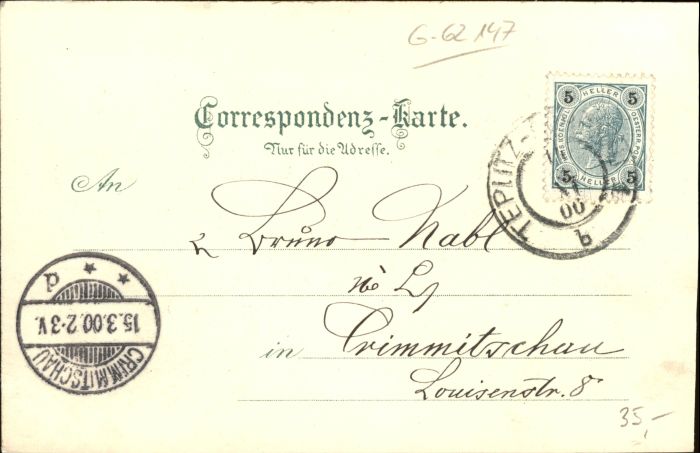 G-62 147
Correspondenz-Karte.
Nur für die Adresse.
5 HELLER 5
5 HELLER 5
TEPLITZ-
00
b
An
Bruno Nabl
in Crimmitschau
Louisenstr. 8
d
15.3.00.2-3V.
CRIMMITSCHAU
35,-